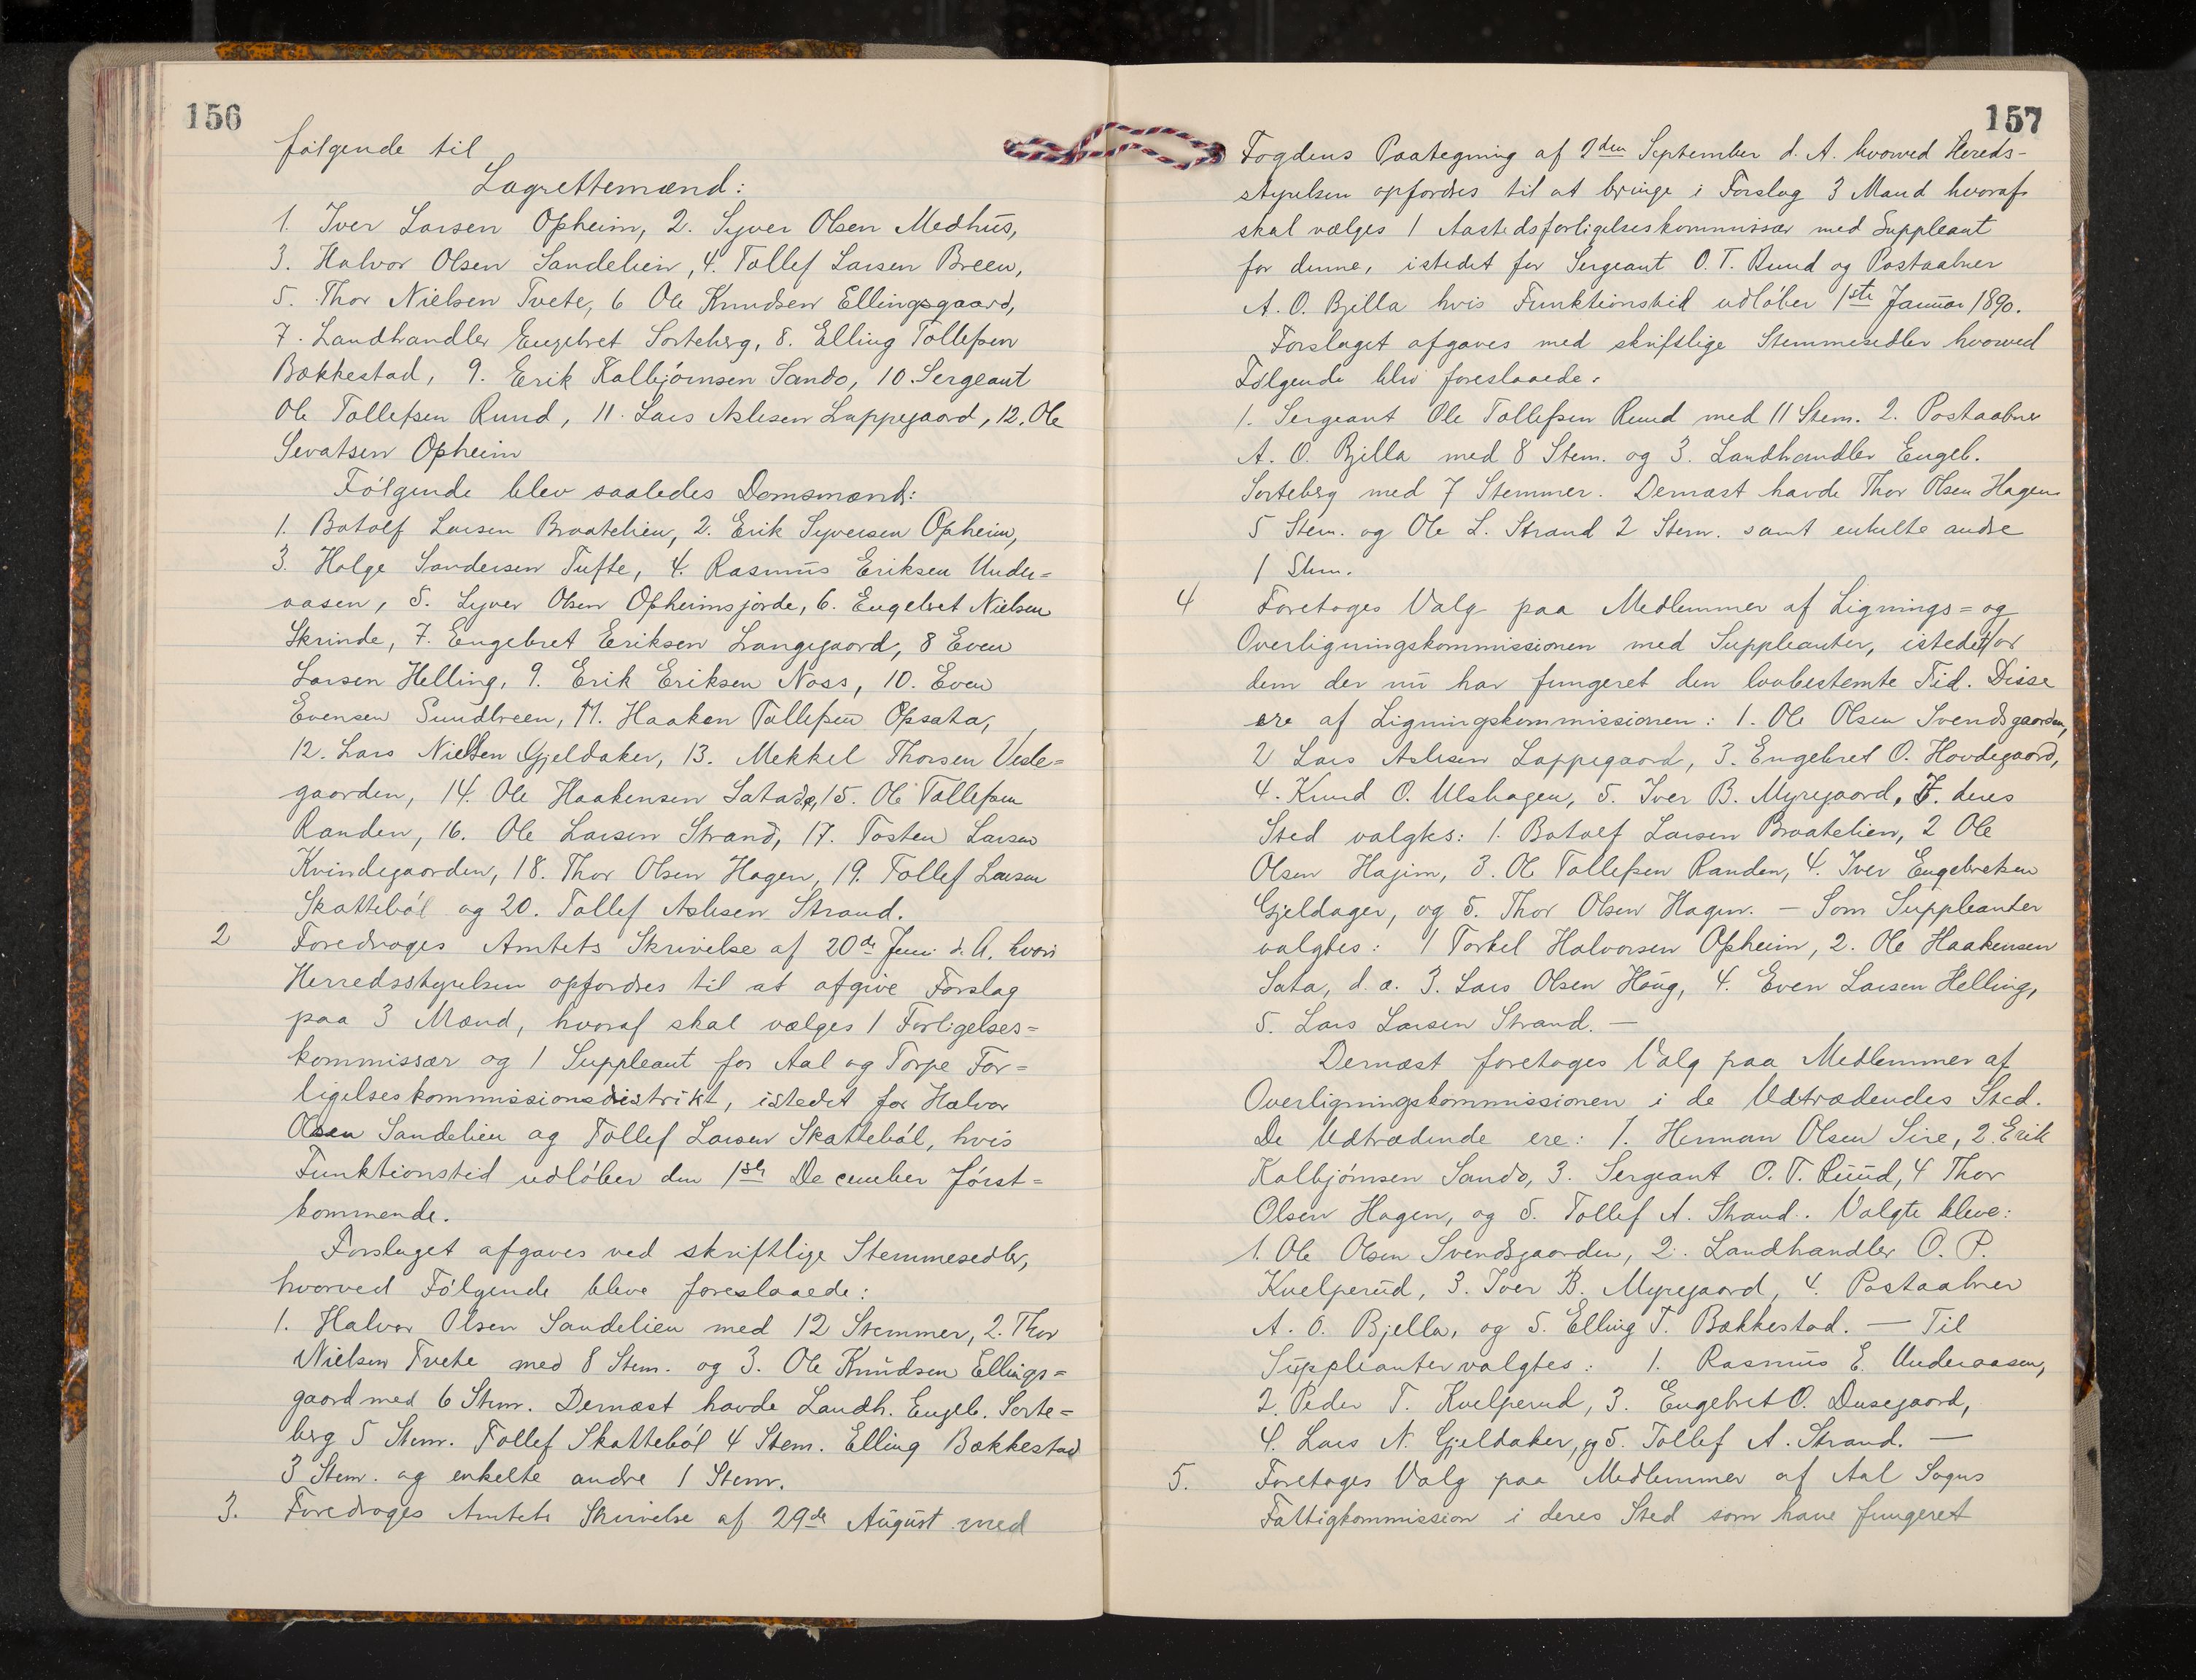 156
følgende til
Lagrettemænd:
1. Iver Larsen Opheim, 2. Syver Olsen Medhus,
3. Halvor Olsen Sandelien, 4. Tollef Larsen Breen,
5. Thor Nielsen Tvete, 6 Ole Knudsen Ellingsgaard,
7. Landhandler Engebret Sorteberg, 8. Elling Tollefsen
Bækkestad, 9. Erik Kolbjørnsen Sando, 10. Sergeant
Ole Tollefsen Ruud, 11. Lars Aslesen Lappegaard, 12. Ole
Sevatsen Opheim
Følgende blev saaledes Domsmænd:
1. Botolf Larsen Braatelien, 2. Erik Syversen Opheim,
3. Holge Sandersen Tufte, 4. Rasmus Eriksen Under=
aasen, 5. Syver Olsen Opheimsjorde, 6. Engebret Nielsen
Skrinde, 7. Engebret Eriksen Langegaard, 8 Even
Larsen Helling, 9. Erik Eriksen Noss, 10. Even
Evensen Sundbreen, 11. Haaken Tollefsen Opsata,
12. Lars Nielsen Gjeldaker, 13. Mekkel Thorsen Vesle=
gaarden, 14. Ole Haakensen Sata 15. Ole Tollefsen
Randen, 16. Ole Larsen Strand, 17. Tosten Larsen
Kvindegaarden, 18. Thor Olsen Hagen, 19. Tollef Larsen
Skattebøl og 20. Tollef Aslesen Strand.
2 Foredroges Amtets Skrivelse af 20de Juni d. A. hvori
Herredsstyrelsen opfordres til at afgive Forslag
paa 3 Mænd, hvoraf skal vælges 1 Forligelses=
kommissær og 1 Suppleant for Aal og Torpe For=
ligelseskommissionsdistrikt, istedet for Halvor
Olsen Sandelien og Tollef Larsen Skattebøl, hvis
Funktionstid udløber den 1ste December først=
kommende.
Forslaget afgaves ved skriftlige Stemmesedler,
hvorved Følgende bleve foreslaaede:
1. Halvor Olsen Sandelien med 12 Stemmer, 2. Thor
Nielsen Tvete med 8 Stem. og 3. Ole Knudsen Ellings=
gaard med 6 Stem. Dernæst havde Landh. Engeb. Sorte=
berg 5 Stem. Tollef Skattebøl 4 Stem. Elling Bækkestad
3 Stem. og enkelte andre 1 Stem.
3. Foredroges Amtets Skrivelse af 29de August med
157
Fogdens Paategning af 2den September d. A. hvorved Hereds-
styrelsen opfordres til at bringe i Forslag 3 Mand hvoraf
skal vælges 1 Aastedsforligelseskommissær med Suppleant
for denne, istedet for Sergeant O. T. Ruud og Postaabner
A. O. Bjella hvis Funktionstid udløber 1ste Januar 1890.
Forslaget afgaves med skriftlige Stemmesedler hvorved
Følgende blev foreslaaede:
1. Sergeant Ole Tollefsen Ruud med 11 Stem. 2. Postaabner
A. O. Bjella med 8 Stem. og 3. Landhandler Engeb.
Sorteberg med 7 Stemmer. Dernæst havde Thor Olsen Hagen
5 Stem. og Ole L. Strand 2 Stem. samt enkelte andre
1 Stem.
4 Foretoges Valg paa Medlemmer af Lignings= og
Overligningskommissionen med Suppleanter, istedetfor
dem der nu har fungeret den lovbestemte Tid. Disse
ere af Ligningskommissionen: 1. Ole Olsen Svendsgaarden,
2 Lars Aslesen Lappegaard, 3. Engebret O. Hovdegaard,
4. Knud O. Ulshagen, 5. Iver B. Myregaard, I. deres
Sted valgtes: 1. Botolf Larsen Braatelien, 2 Ole
Olsen Hajim, 3. Ole Tollefsen Randen, 4. Iver Engebretsen
Gjeldager, og 5. Thor Olsen Hagen. — Som Suppleanter
valgtes: 1 Torkel Halvorsen Opheim, 2. Ole Haakensen
Sata, d. æ. 3. Lars Olsen Haug, 4. Even Larsen Helling,
5. Lars Larsen Strand. —
Dernæst foretoges Valg paa Medlemmer af
Overligningskommissionen i de Udtrædendes Sted.
De Udtrædende ere: 1. Herman Olsen Sire, 2. Erik
Kolbjørnsen Sando, 3. Sergeant O. T. Ruud, 4 Thor
Olsen Hagen, og 5. Tollef A. Strand. Valgte bleve:
1. Ole Olsen Svendsgaarden, 2. Landhandler O. P.
Kvelperud, 3. Iver B. Myregaard, 4. Postaabner
A. O. Bjella, og 5. Elling T. Bækkestad. — Til
Suppleanter valgtes: 1. Rasmus E. Underaasen,
2. Peder T. Kvelperud, 3. Engebret O. Dusegaard,
4. Lars N. Gjeldaker, og 5. Tollef A. Strand. —
5. Foretoges Valg paa Medlemmer af Aal Sogns
Fattigkommission i deres Sted som have fungeret